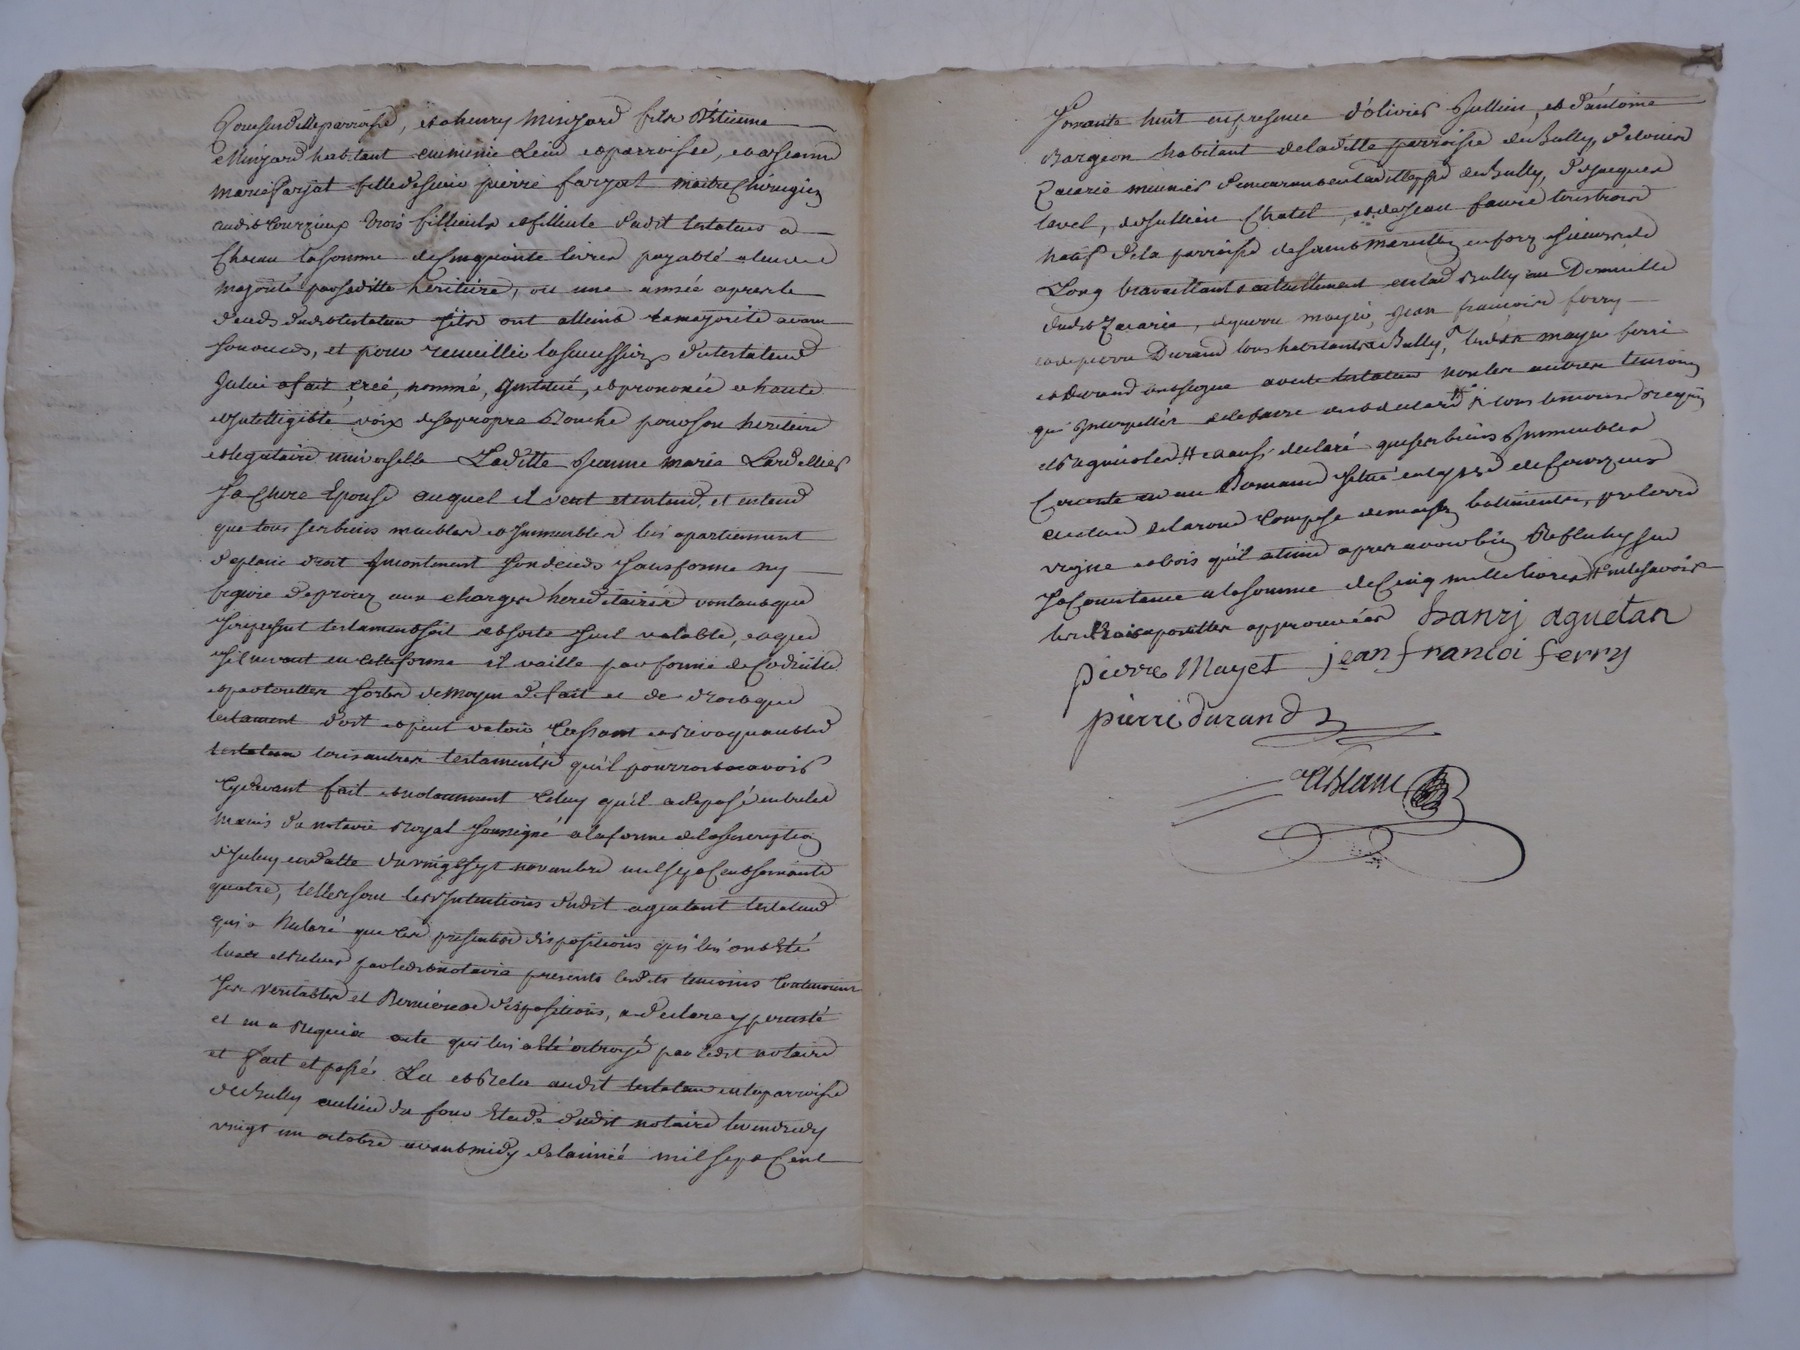 dit parroisse, et a henry Minjard fils d'Etienne
Minjard habitant au meme Lieu et parroisse, et a Jeanne
marie farjat fille de sieur pierre farjat maitre Chirugien
audit Courzieux trois fillieuls et filleule dudit testateur a
Chacun la somme de Cinquante livres payable a leur
majorité par saditte heritiere, ou une année apres le
deceds dudit testateur s'ils ont atteint la majorite avant
son deceds, et pour recueillir la succession du testateur
Jcelui a fait, créé, nommé, institué, et prononcé a haute
et Intelligible voix de sa propre Bouche pour son heritiere
et legataire universelle Laditte Jeanne Marie Lardellier
sa Chere Epouse auquel il veut et entend, et entend
que tous ses biens meubles et Immeubles lui apartiennent
de plein droit Incontinent son deceds sans forme ny
figure de procez aux charges hereditaires voulant que
son present testament soit et sorte soit valable, et que
s'il ne vaut en cette forme il vaille par forme de Codicille
et par toutes sortes de moyen de fait et de droit que
testament doit et peut valoir Cassant et Revoquant led
testateur tous autres testaments qu'il pourroit avoir
Cydevant fait et notamment Celuy qu'il a deposé entre les
mains du notaire Royal soussigné a la forme de la suscription
d'Jceluy en datte du vingt sept novembre mil sept Cent soixante
quatre, telles sont les Intentions dudit aguetant testateur
qui a declaré que les presentes dispositions qui lui ont Eté
lues et relues par ledit notaire presents lesdits temoins Contiennent
ses veritables et Dernieres dispositions, a declaré y persisté
et m'a Requis acte qui lui a été octroyé par ledit notaire
et fait et passé Lu et Relu audit testateur en la parroisse
de Bully au lieu du four Etude dudit notaire le vendredy
vingt un octobre avant midy de l'année mil sept Cent
soixante huit en presence d'olivier Jullien, et d'antoine
Bargeon habitant de laditte parroisse de Bully, de
Zacarie meunier demeurant en laditte psse de Bully, de Jacques
lavel, de Jullien Chatel, et de Jean faure tous trois
natif de la parroisse de saint marcellin en forez
Long travaillants actuellement en lad Bully au Domicille
dudit Zacarie, de pierre mayet, Jean francois ferry
et de pierre Durand tous habitants a Bully, lesdits mayet ferri
et Durand ont signé avec le testateur non les autres temoins
qui Interpellés de le faire ont declaré tous temoins Requis
et a aussi declaré que ses biens Immeubles
Consiste en un Domaine situé en la psse de Courzieux
Composé de maison, batiments, prés terres
vigne et bois qu'il estime apres avoir bien Reflechy sur
sa Consistance a la somme de Cinq mille livres
les Trois apostilles approuvées hanrj aguetan
pierre Mayet jean francoi ferry
pierre durand